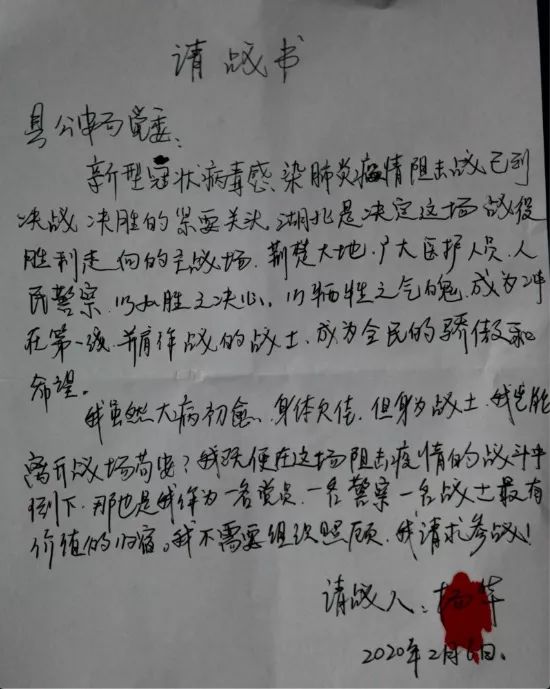 请战书
县公安局党委:
新型冠状病毒感染肺炎疫情阻击战已到
决战决胜的紧要关头,湖北是决定这场战役
胜利走向的主战场.荆楚大地.广大医护人员.人
民警察.以必胜之决心.以牺牲之气魄.成为冲
在第一线.并肩作战的战士.成为全民的骄傲和
希望。
我虽然大病初愈.身体欠佳.但身为战士.我岂能
离开战场苟安?我既便在这场阻击疫情的战斗中
倒下.那也是我作为一名党员.一名警察一名战士最有
价值的归宿。我不需要组织照顾.我请求参战!
请战人:杨华
2020年2月6日.